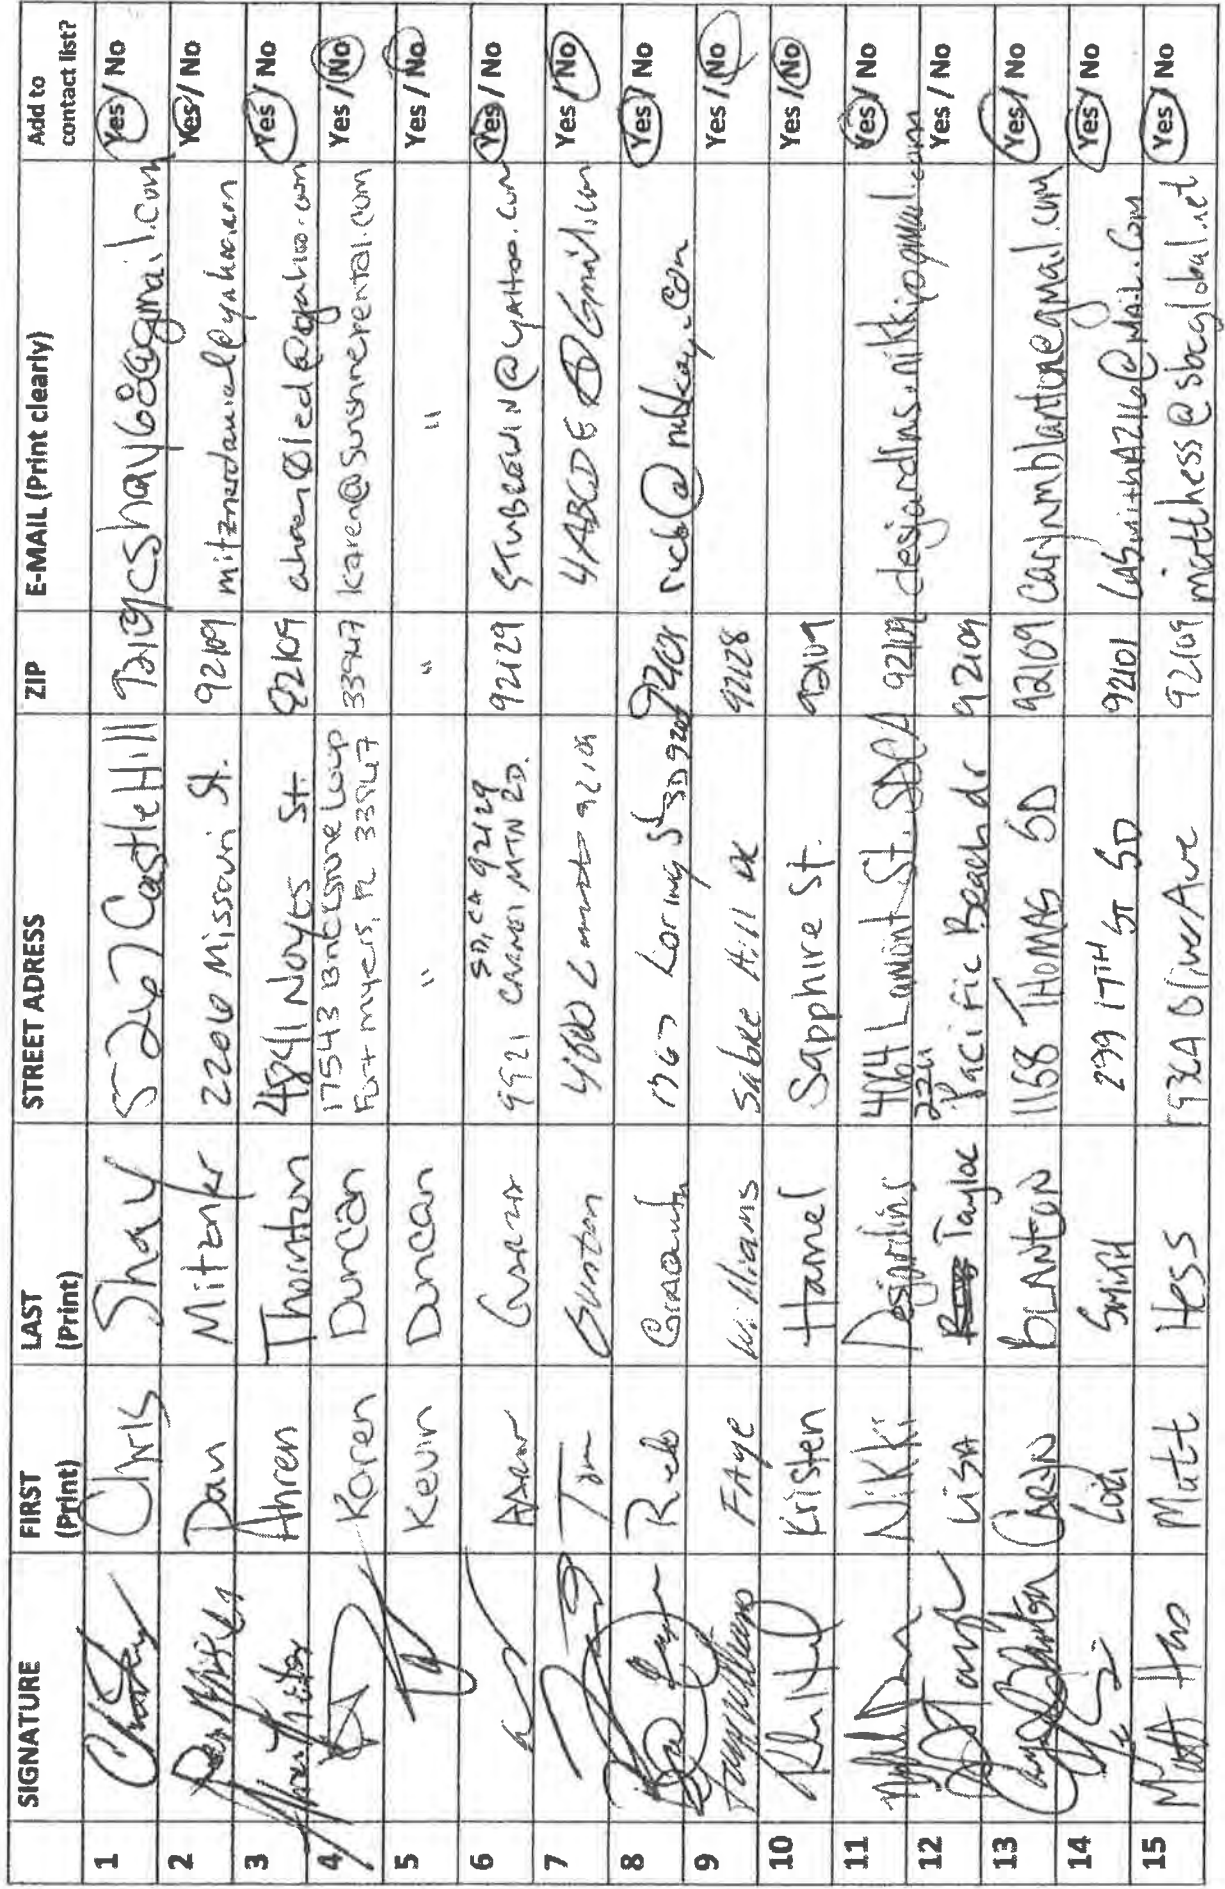 SIGNATURE FIRST (Print) LAST (Print) STREET ADDRESS ZIP E-MAIL (Print clearly) Add to contact list?
1 Chris Shay 5267 Castle Hill 92109 cshay68@gmail.com Yes / No
2 Dan Mitzner 2206 Missouri St. 92109 mitznerdaniel@yahoo.com Yes / No
3 Ahren Thornton 4841 Noyes St. 92109 ahren01ed@yahoo.com Yes / No
4 Karen Duncan 17543 Brickstone Loop Fort myers, FL 33967 33967 Karen@sunshinerental.com Yes / No
5 Kevin Duncan " " " Yes / No
6 Garza 9921 CARMEL MTN RD. SD, CA 92129 92129 GTUBREWIN@YAHOO.com Yes / No
7 Tom 4600 Lamont 92109 4ABCDE@Gmail.com Yes / No
8 Rick Loring St SD 92109 Yes / No
9 FAye Williams Sabre Hill Dr 92128 Yes / No
10 Kristen Hamel Sapphire St. 92109 Yes / No
11 Nikki Desjardins 4064 Lamont St. SD CA 92109 desjardins.nikki@gmail.com Yes / No
12 LiSA Taylor Pacific Beach dr 92109 Yes / No
13 CARYN BLANTON 1168 THOMAS SD 92109 carynmblanton@gmail.com Yes / No
14 SMITH 299 17TH ST SD 92101 Yes / No
15 Matt Hess 1936A Oliver Ave 92109 matthess@sbcglobal.net Yes / No